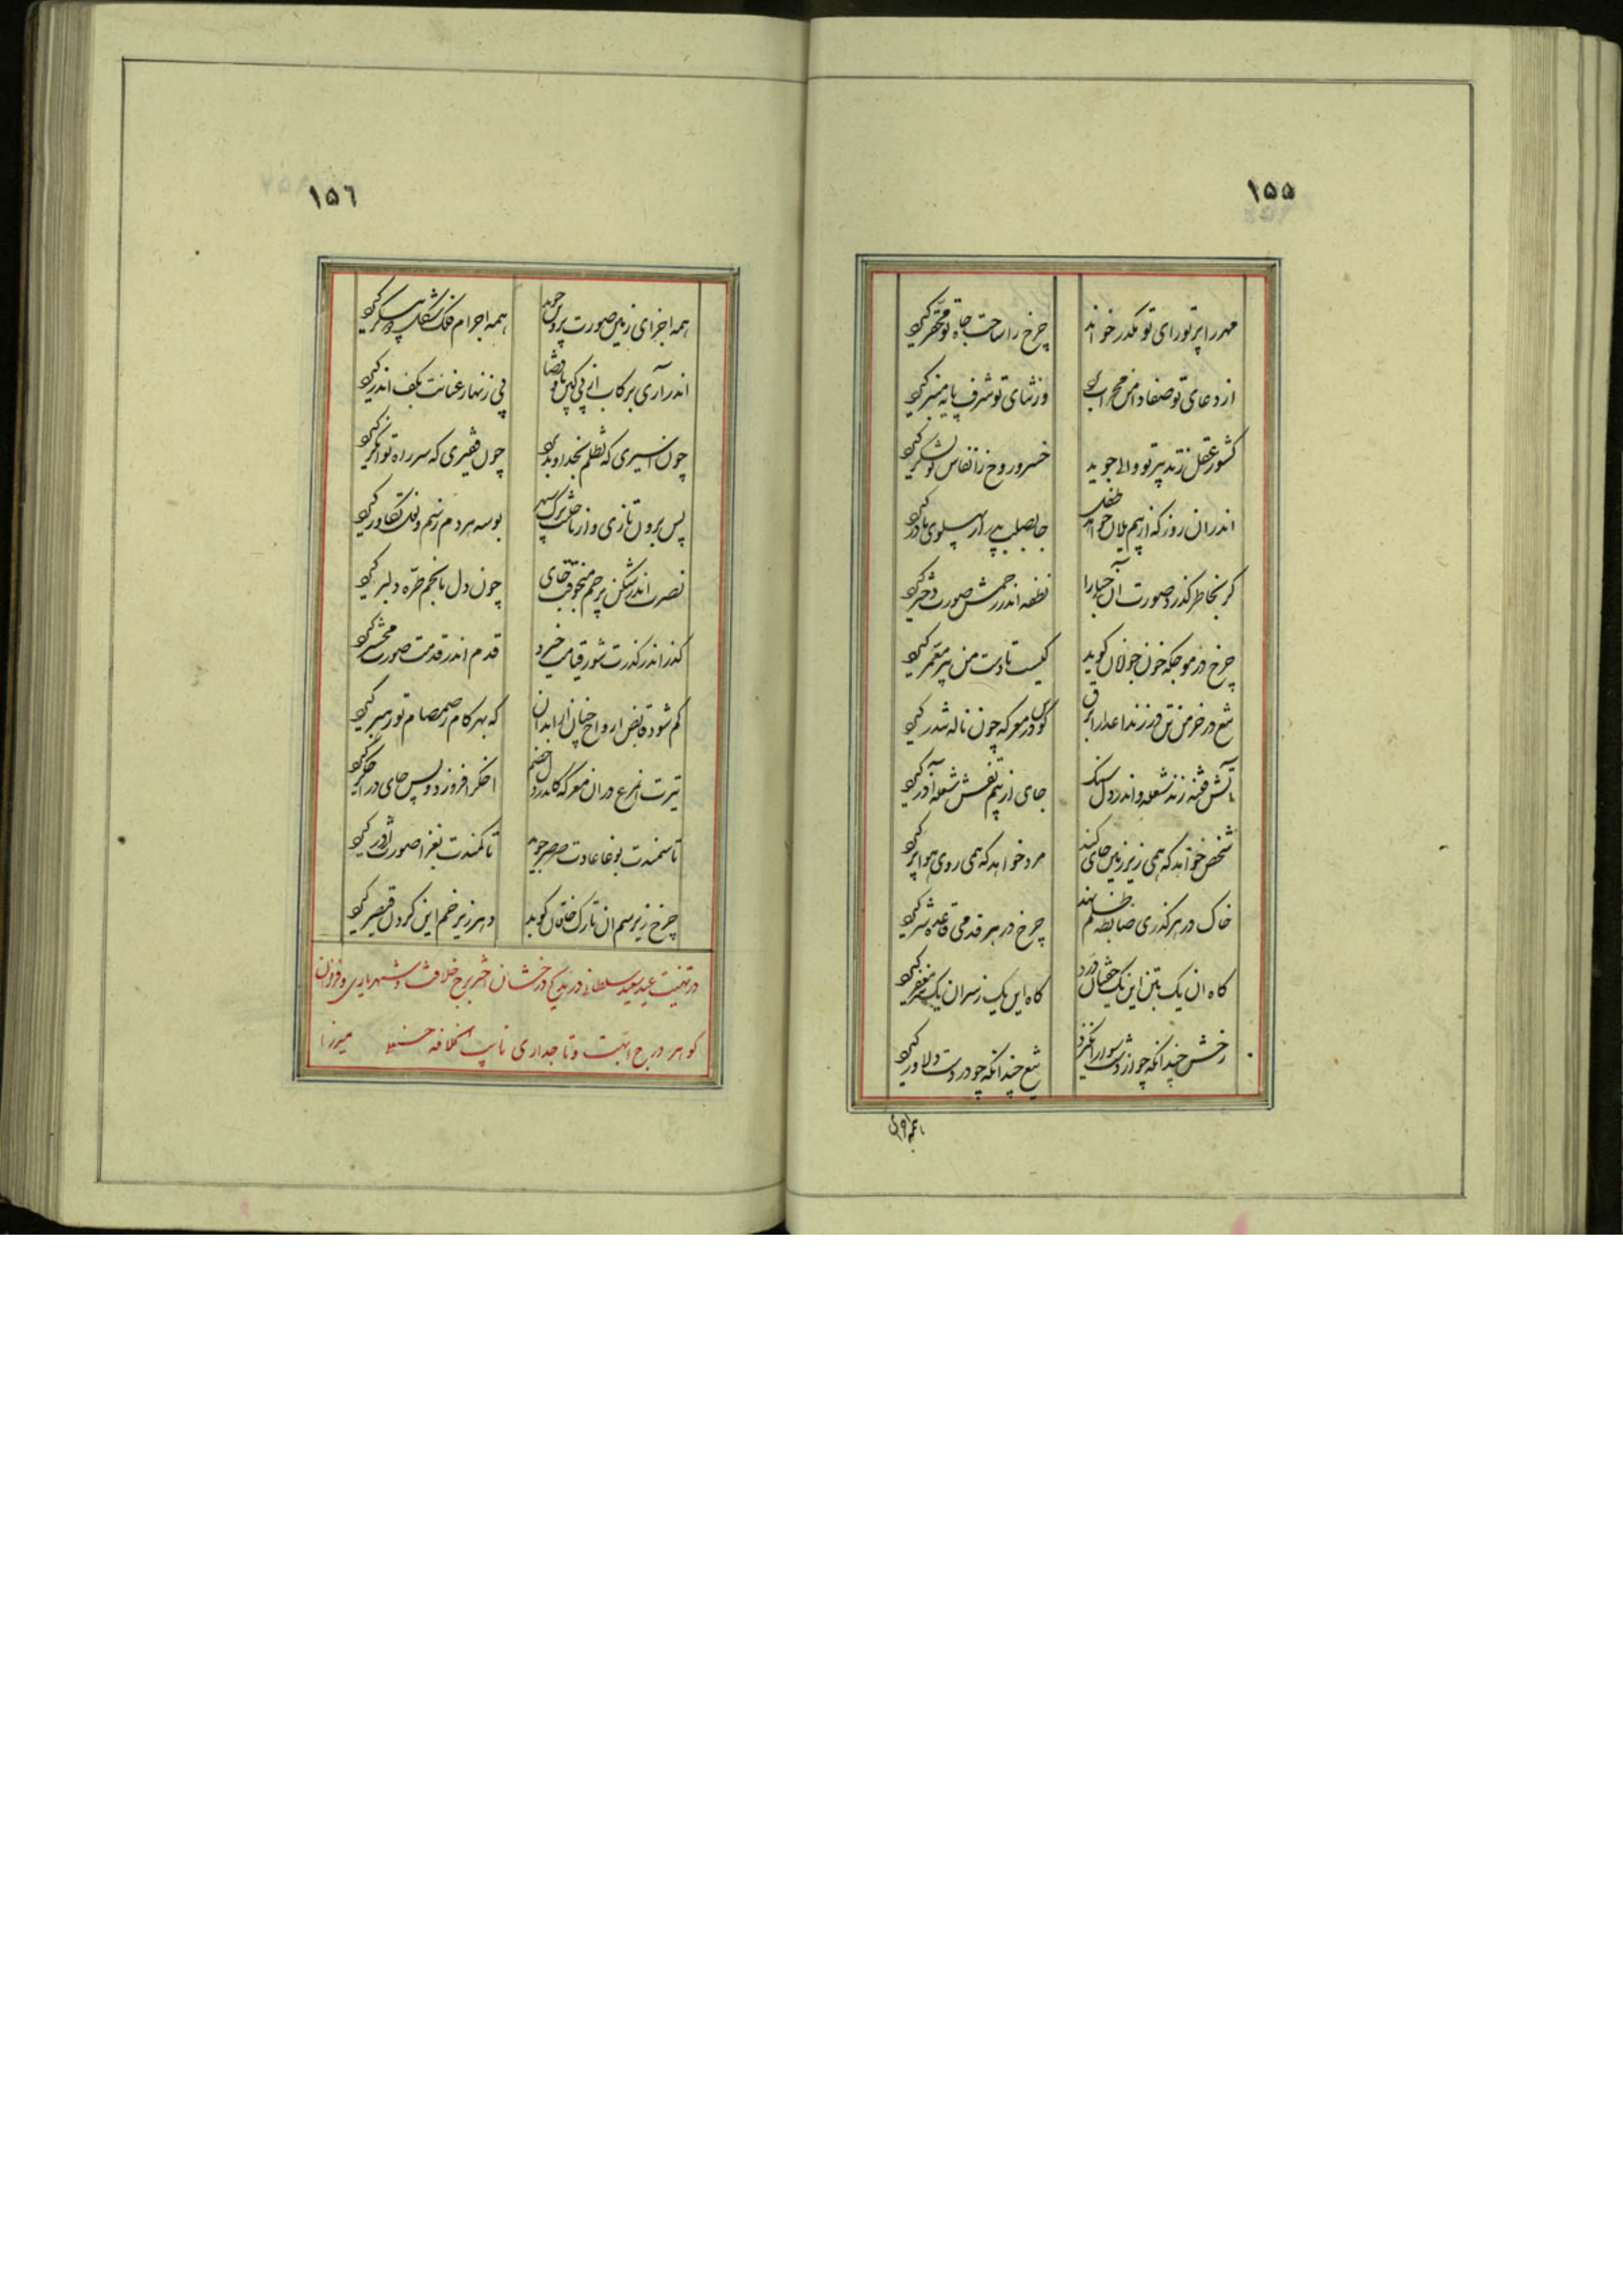 ۱۵۵
مهر را پرتو رای تو مکدر خواند چرخ را ساحت جاه تو محقر گیرد
از دعای تو صفا دامن محراب وز ثنای تو شرف پایه منبر گیرد
کشور عقل ز تدبیر تو والی جوید خسرو روح ز انفاس تو لشکر گیرد
اندران روز که از بیم یلان خواهد طفل جا بصلب پدر از پهلوی مادر گیرد
گر بخاطر گذرد صورت آن هیجا را نطفه اندر رحمش صورت دختر گیرد
چرخ در موجکه خون جولان گوید کیست تا دست من پیر معمر گیرد
تیغ در خرمن تن در زند اعدا را برق کوس در معرکه چون ناله تندر گیرد
آتش فتنه زند شعله و اندر دل سنگ جای از بیم تفش شعله آذر گیرد
شخص خواهد که همی زیر زمین جای کند مرد خواهد که همی روی هوا پر گیرد
خاک در هر گذری ضابطه ظلم نهد چرخ در هر قدمی قاعده شر گیرد
گاه ان یک ز تن این یک خفتان درد گاه این یک ز سران یک مغفر گیرد
رخش چندانکه چو از دست سوار انگیزد تیغ چندانکه چو در دست دلاور گیرد
همه اجزای
۱۵٦
همه اجزای زمین صورت پروین جوید همه اجرام فلک شکل دو پیکر گیرد
اندر آری برکاب از پی کین پا و قضا پی زنهار عنانت بکف اندر گیرد
چون اسیری که تظلم بخداوند برد چون فقیری که سر راه توانگر گیرد
پس برون تازی و از بهر بوسه هر دم ز سم تکاور گیرد
نصرت اندر شکن پرچم منجوقت جای چون دل ما بخم طره دلبر گیرد
گذر اندر گذرت شور قیامت خیزد قدم اندر قدمت صورت محشر گیرد
گم شود قابض ارواح چنان از ابدان که بهر گام ز صمصام تو رهبر گیرد
تیرت از نزع در ان معرکه کاندر دل خصم اخگر افروزد و پس جای در اخگر گیرد
تا سمندت بوغا عادت صرصر جوید تا کمندت بغزا صورت اژدر گیرد
چرخ زیر سم ان تارک خاقان کوبد دهر زیر خم این گردن قیصر گیرد
در تهنیت عید سعید سلطانی در مدح درخشان اختر برج خلافت و شهریاری و فروزان
گوهر درج ابهت و تاجداری نایب الخلافه میرزا